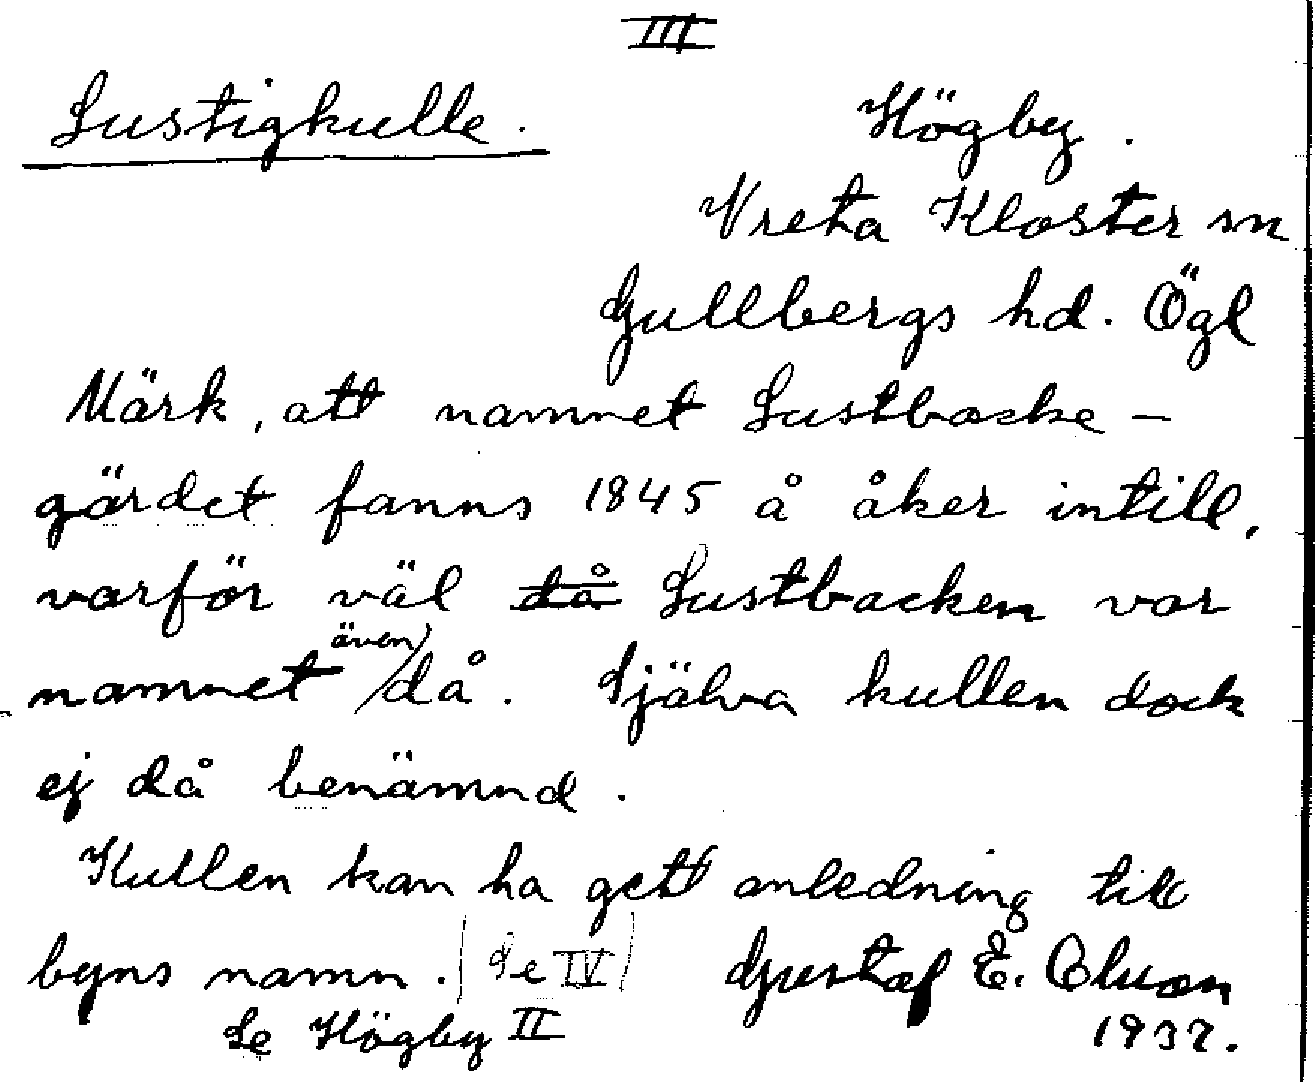 III
Lustigkulle.
Högby.
Vreta Kloster sn
Gullbergs hd. Ögl
Märk, att namnet Lustbacke-
gärdet fanns 1845 å åker intill,
varför väl då Lustbacken var
namnet även då. Själva kullen dock
ej då benämnd.
Kullen kan ha gett anledning till
byns namn. (Se IV) Gustaf E. 
Se Högby II 1937.